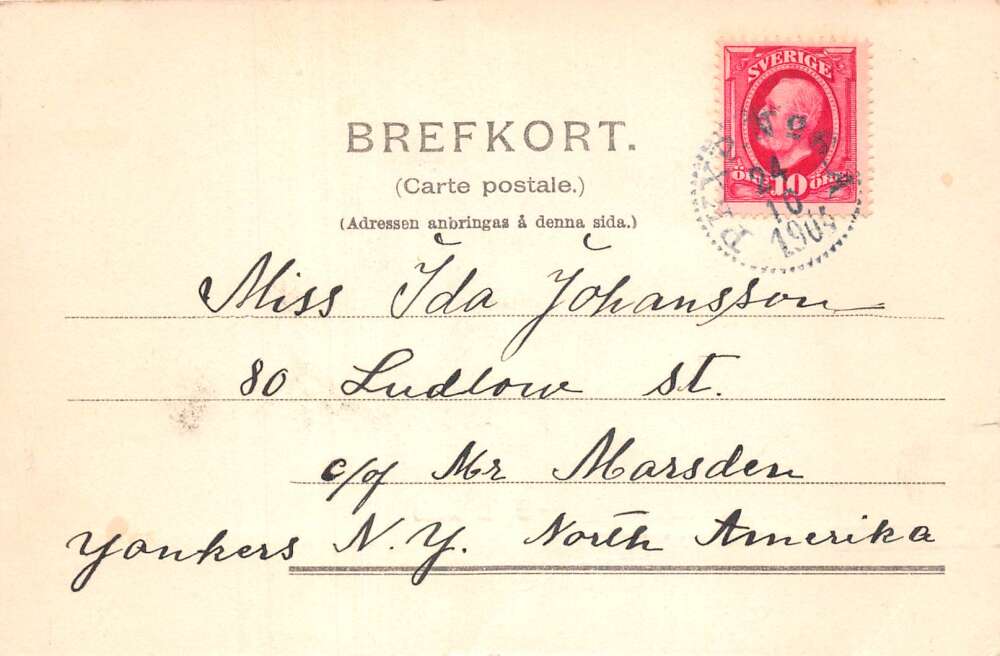 SVERIGE
ÖRE 10 ÖRE
BREFKORT.
(Carte postale.)
(Adressen anbringas å denna sida.)
24
10
Miss Ida Johansson
80 Ludlow st.
c/o Mr Marsden
Yonkers N.Y. North Amerika